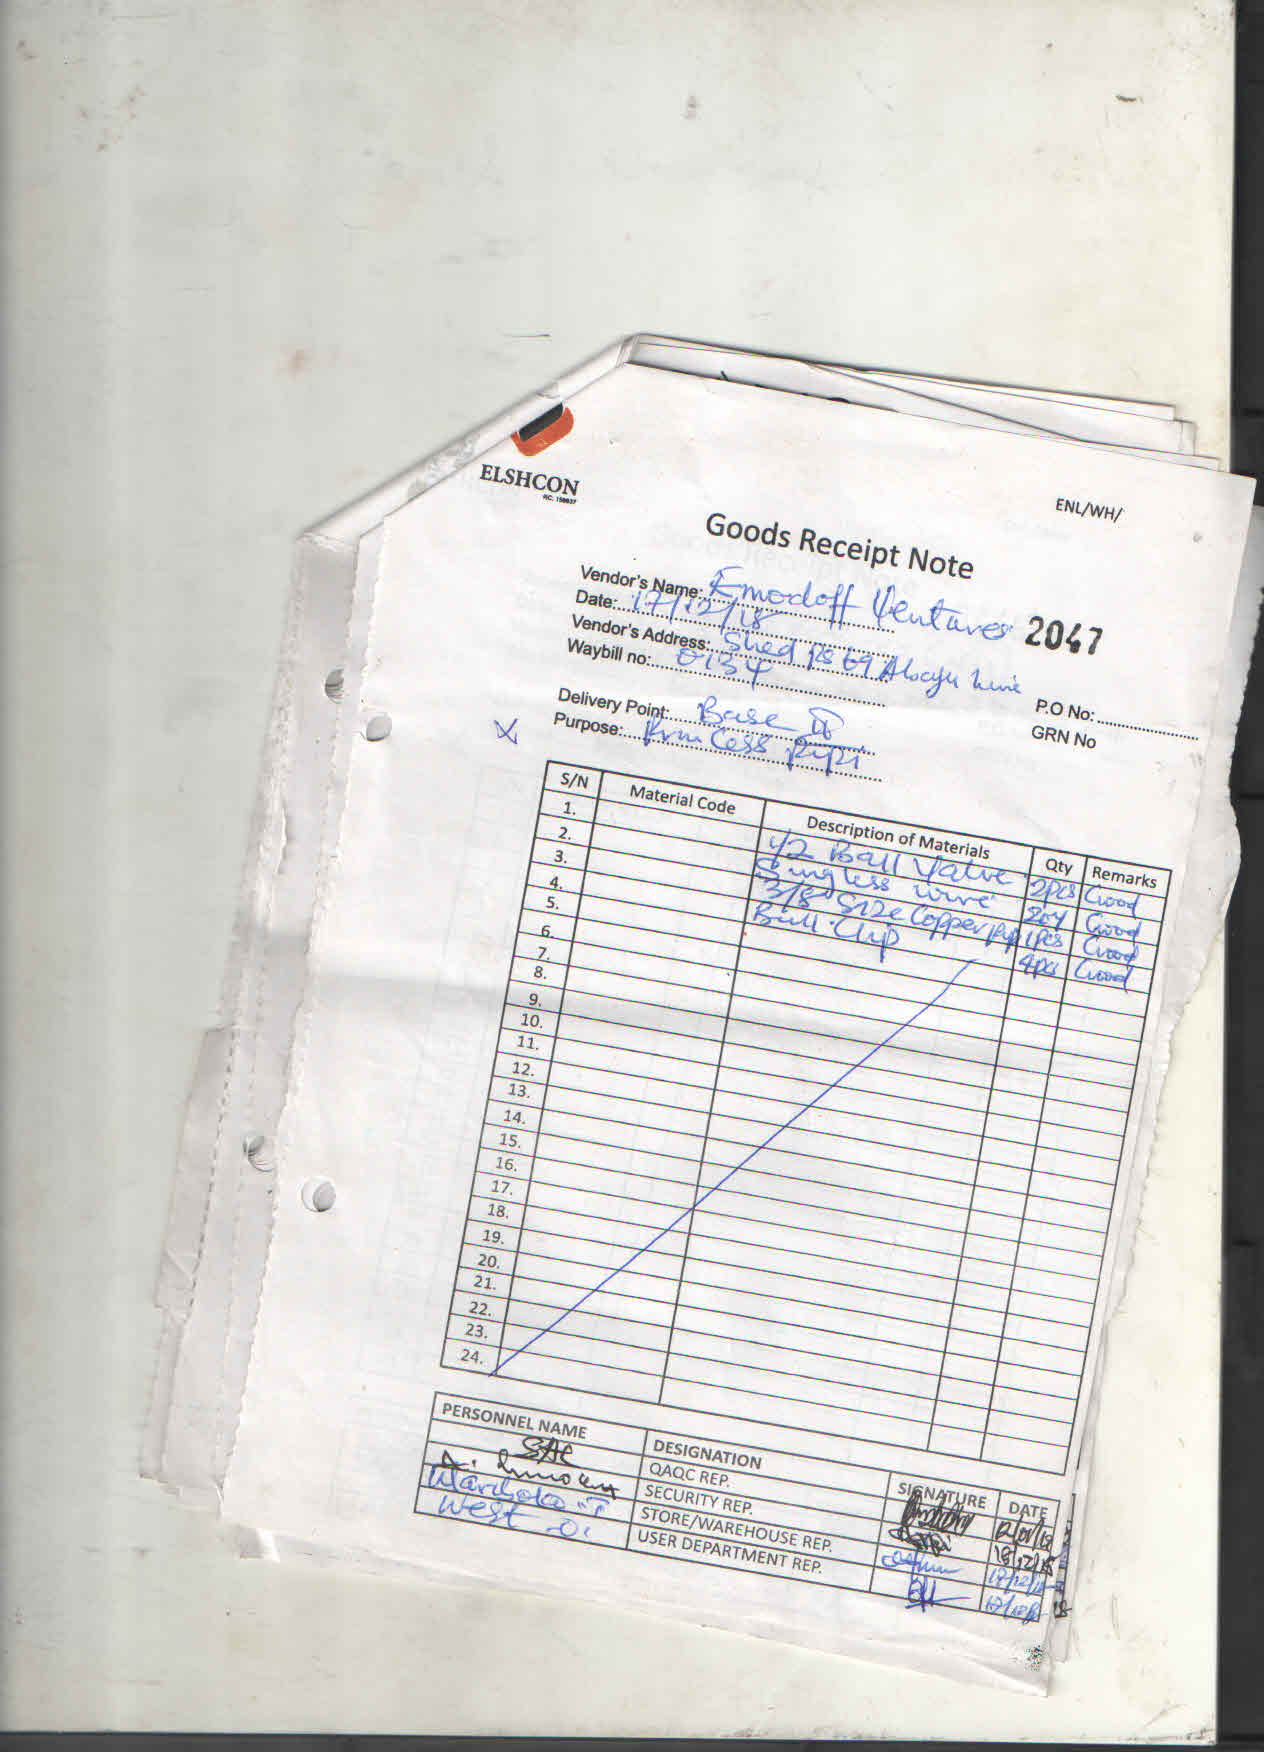 ELSHCON
RC. 159937
ENL/WH/
Goods Receipt Note
Vendor's Name: Emodoff Ventures
2047
Date: 17/12/18
Vendor's Address: Shed 69
Waybill no: 0134
P.O No:
GRN No
Delivery Point: Base II
Purpose: Princess Pipi
S/N Material Code Description of Materials Qty Remarks
1. 1/2 Ball Valve 2pcs Good
2. Singless wire 20y Good
3. 3/8" Size Copper pip 1pcs Good
4. Ball Clip 4pcs Good
5.
6.
7.
8.
9.
10.
11.
12.
13.
14.
15.
16.
17.
18.
19.
20.
21.
22.
23.
24.
PERSONNEL NAME DESIGNATION SIGNATURE DATE
QAQC REP.
A. Innocent SECURITY REP. 18/12/18
Wariboko T STORE/WAREHOUSE REP. 17/12/18
West O. USER DEPARTMENT REP.